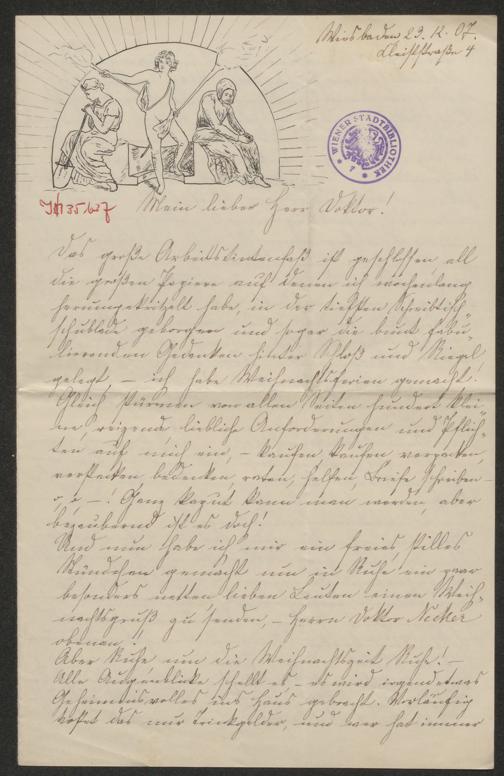 Wiesbaden 23.12.07.
Kleiststraße 4
WIENER STADTBIBLIOTHEK
IN 35637
Mein lieber Herr Doktor!
Das große Arbeitstintenfaß ist geschlossen, all
die großen Papiere auf denen ich wochenlang
herumgekritzelt habe, in der tiefsten Schreibtisch-
schublade geborgen und sogar die bunt fabu-
lierenden Gedanken hinter Schloß und Riegel
gelegt, – ich habe Weihnachtsferien gemacht!
Gleich stürmen von allen Seiten hundert klei-
ne, reizende liebliche Anforderungen und Pflich-
ten auf mich ein, – kaufen, kaufen verpacken,
verstecken, bedenken, raten, helfen, Briefe schreiben
–! Ganz kaput kann man werden, aber
bezaubernd ist es doch!
Und nun habe ich mir ein freies stilles
Stündchen gemacht um in Ruhe ein paar
besonders netten lieben Leuten einen Weih-
nachtsgruß zu senden, – Herrn Doktor Necker
obenan!
Aber Ruhe um die Weihnachtszeit Ruhe! –
Alle Augenblicke schellt es, es wird irgend etwas
Geheimnisvolles ins Haus gebracht. Vorläufig
kostet das nur Trinkgelder, und wer hat immer